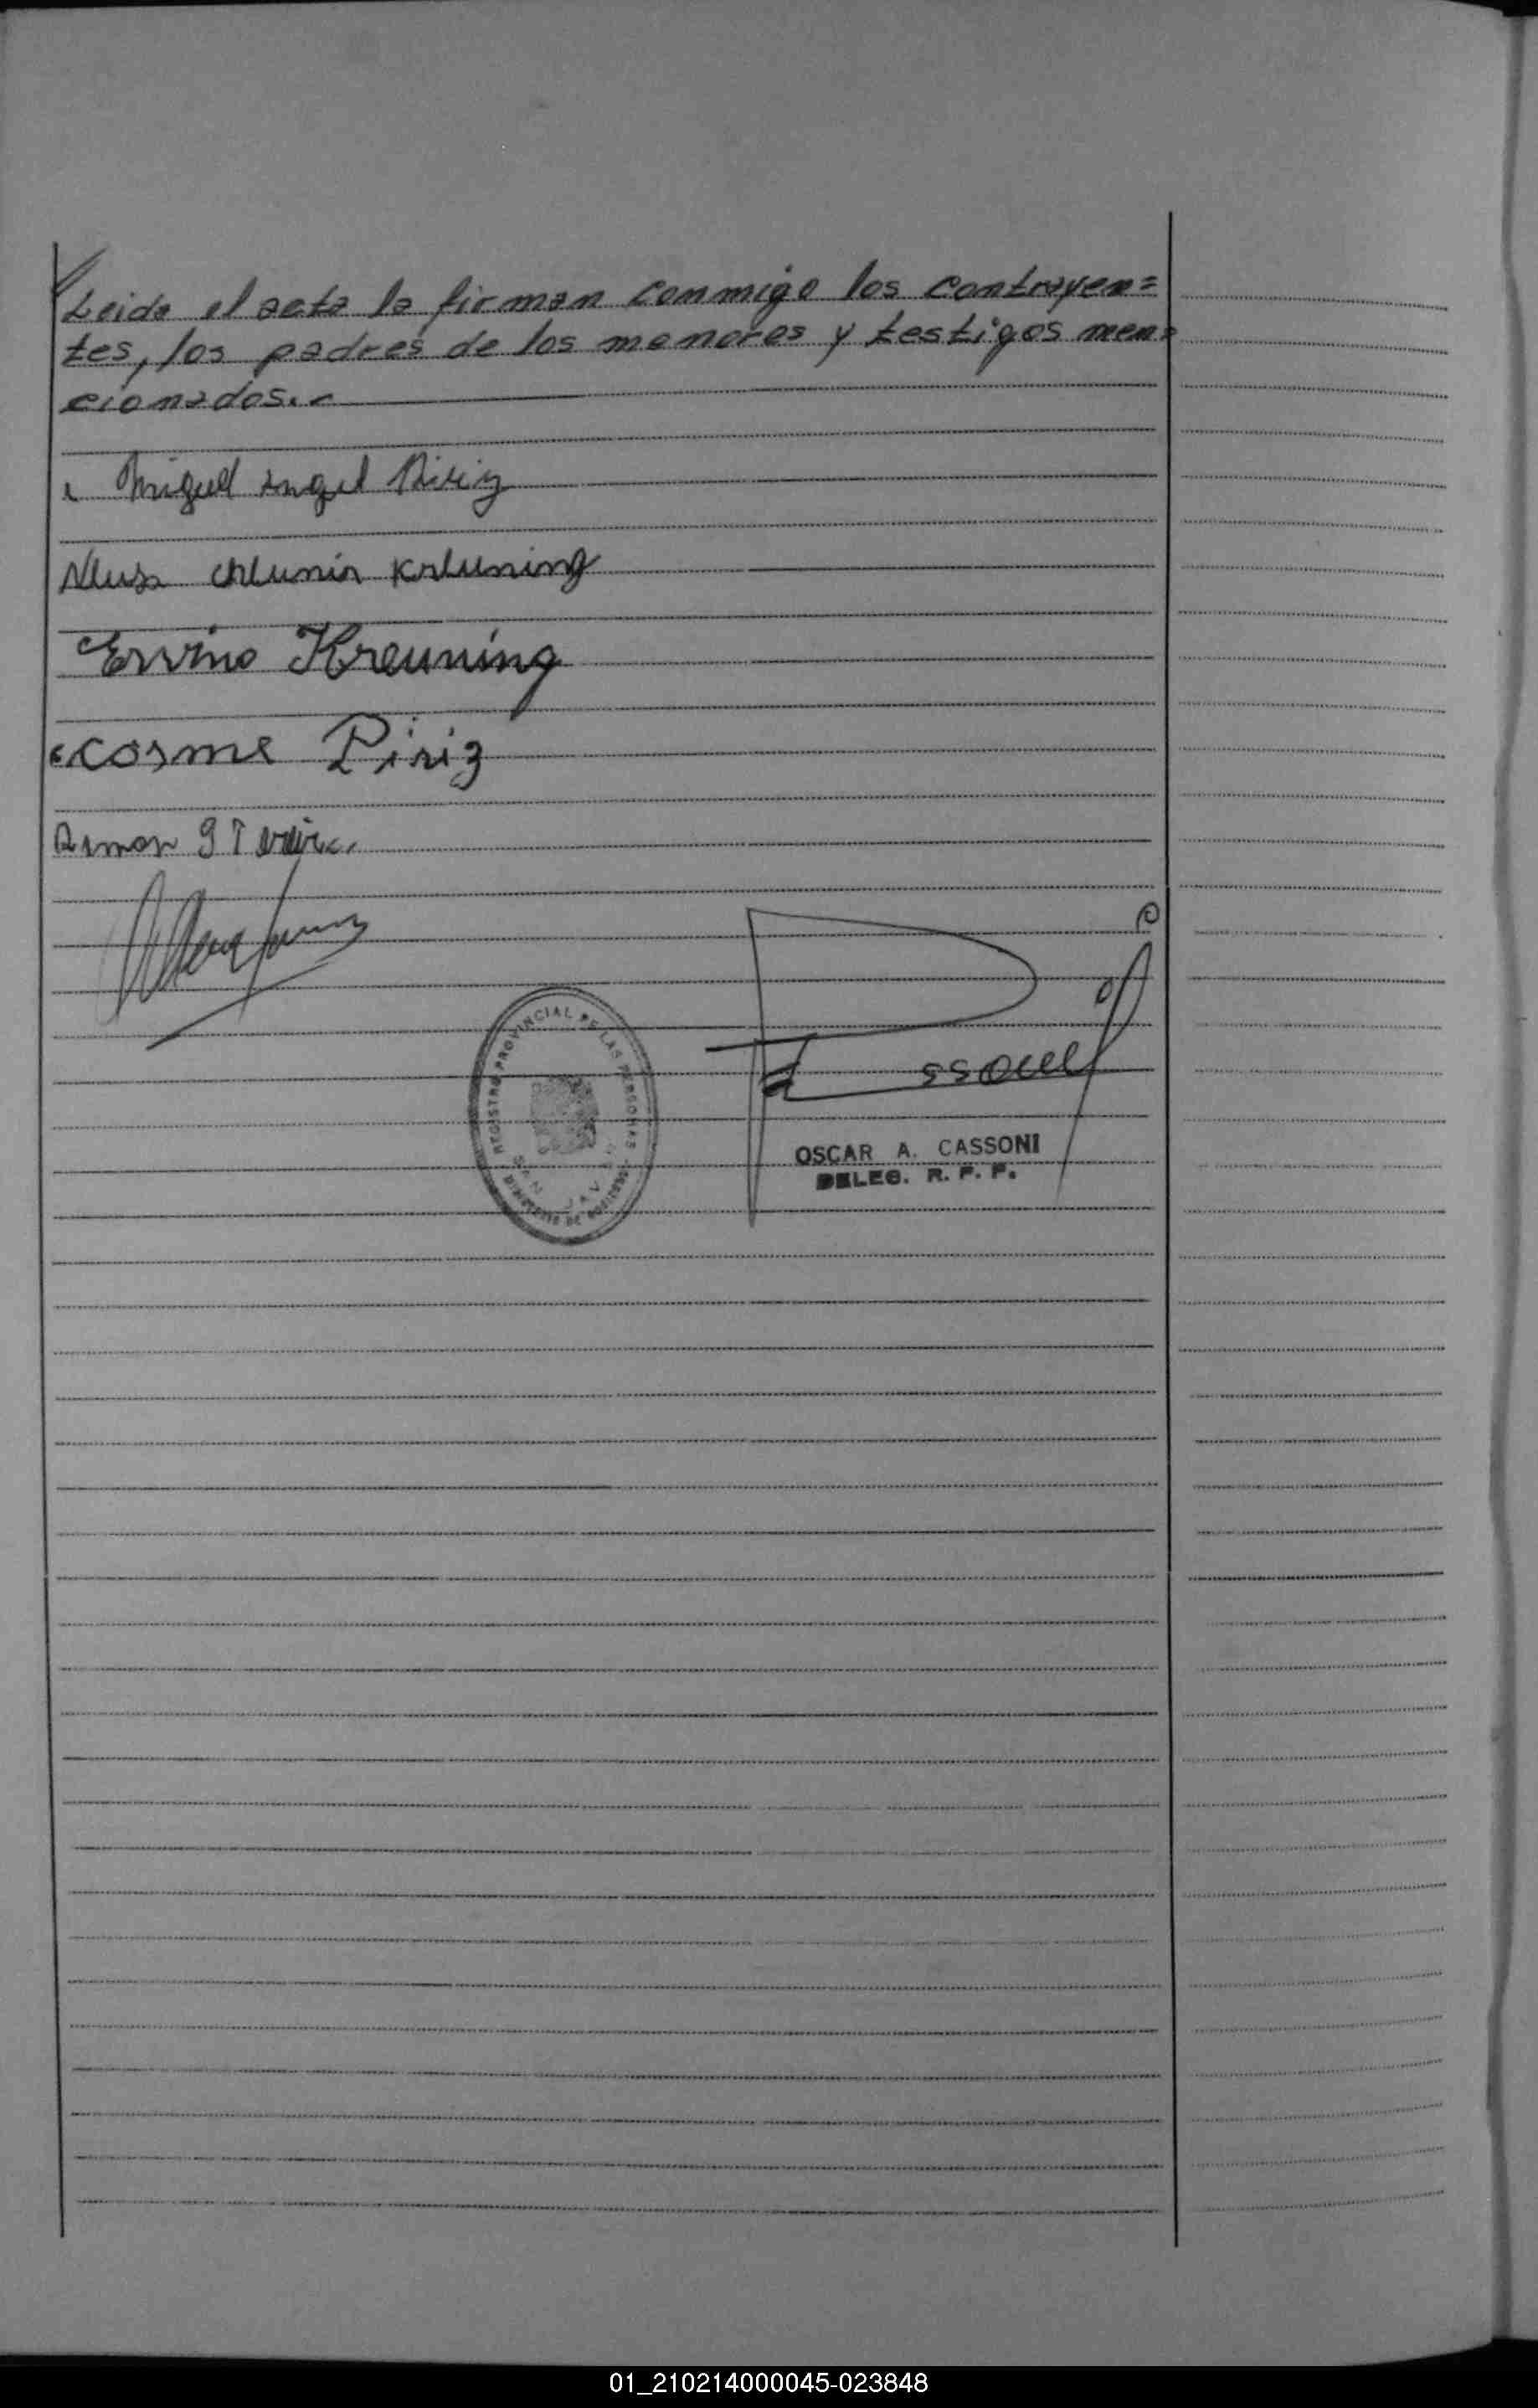 Leida el acta la firman conmigo los contrayen=
tes, los padres de los menores y testigos men=
cionados.-
Miguel Angel Piriz
Neusa Kreuning
Ervino Kreuning
Cosme Piriz
Ramon
REGISTRO PROVINCIAL DE LAS PERSONAS
SAN JAVIER
MINISTERIO DE
OSCAR A. CASSONI
DELEG. R. P. P.
01_210214000045-023848